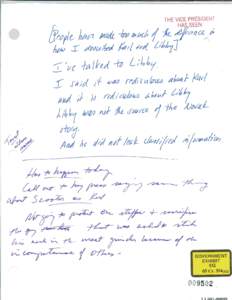 THE VICE PRESIDENT
HAS SEEN
[People have made too much of the difference in
how I described Karl and Libby]
I've talked to Libby.
I said it was ridiculous about Karl
and it is ridiculous about Libby.
Libby was not the source of the Novak
story.
And he did not leak classified information.
Has to happen today
Call out to key press saying same thing
about Scooter as Karl
Not going to protect one staffer + sacrifice
the guy that was asked to stick
his neck in the meat grinder because of the
incompetence of others.
GOVERNMENT
EXHIBIT
009502